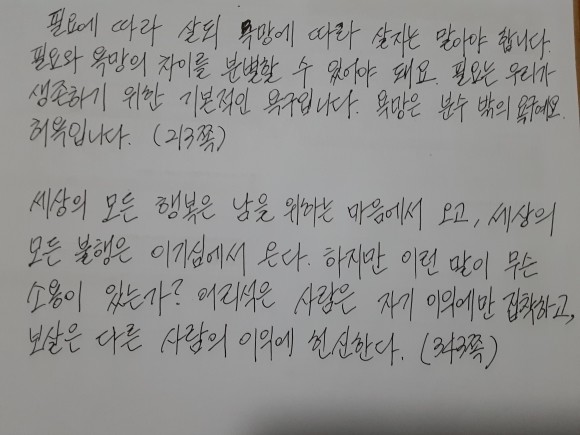 필요에 따라 살되 욕망에 따라 살지는 말아야 합니다.
필요와 욕망의 차이를 분별할 수 있어야 돼요. 필요는 우리가
생존하기 위한 기본적인 욕구입니다. 욕망은 분수 밖의 욕구예요.
허욕입니다. (213쪽)
세상의 모든 행복은 남을 위하는 마음에서 오고, 세상의
모든 불행은 이기심에서 온다. 하지만 이런 말이 무슨
소용이 있는가? 어리석은 사람은 자기 이익에만 집착하고,
보살은 다른 사람의 이익에 헌신한다. (343쪽)